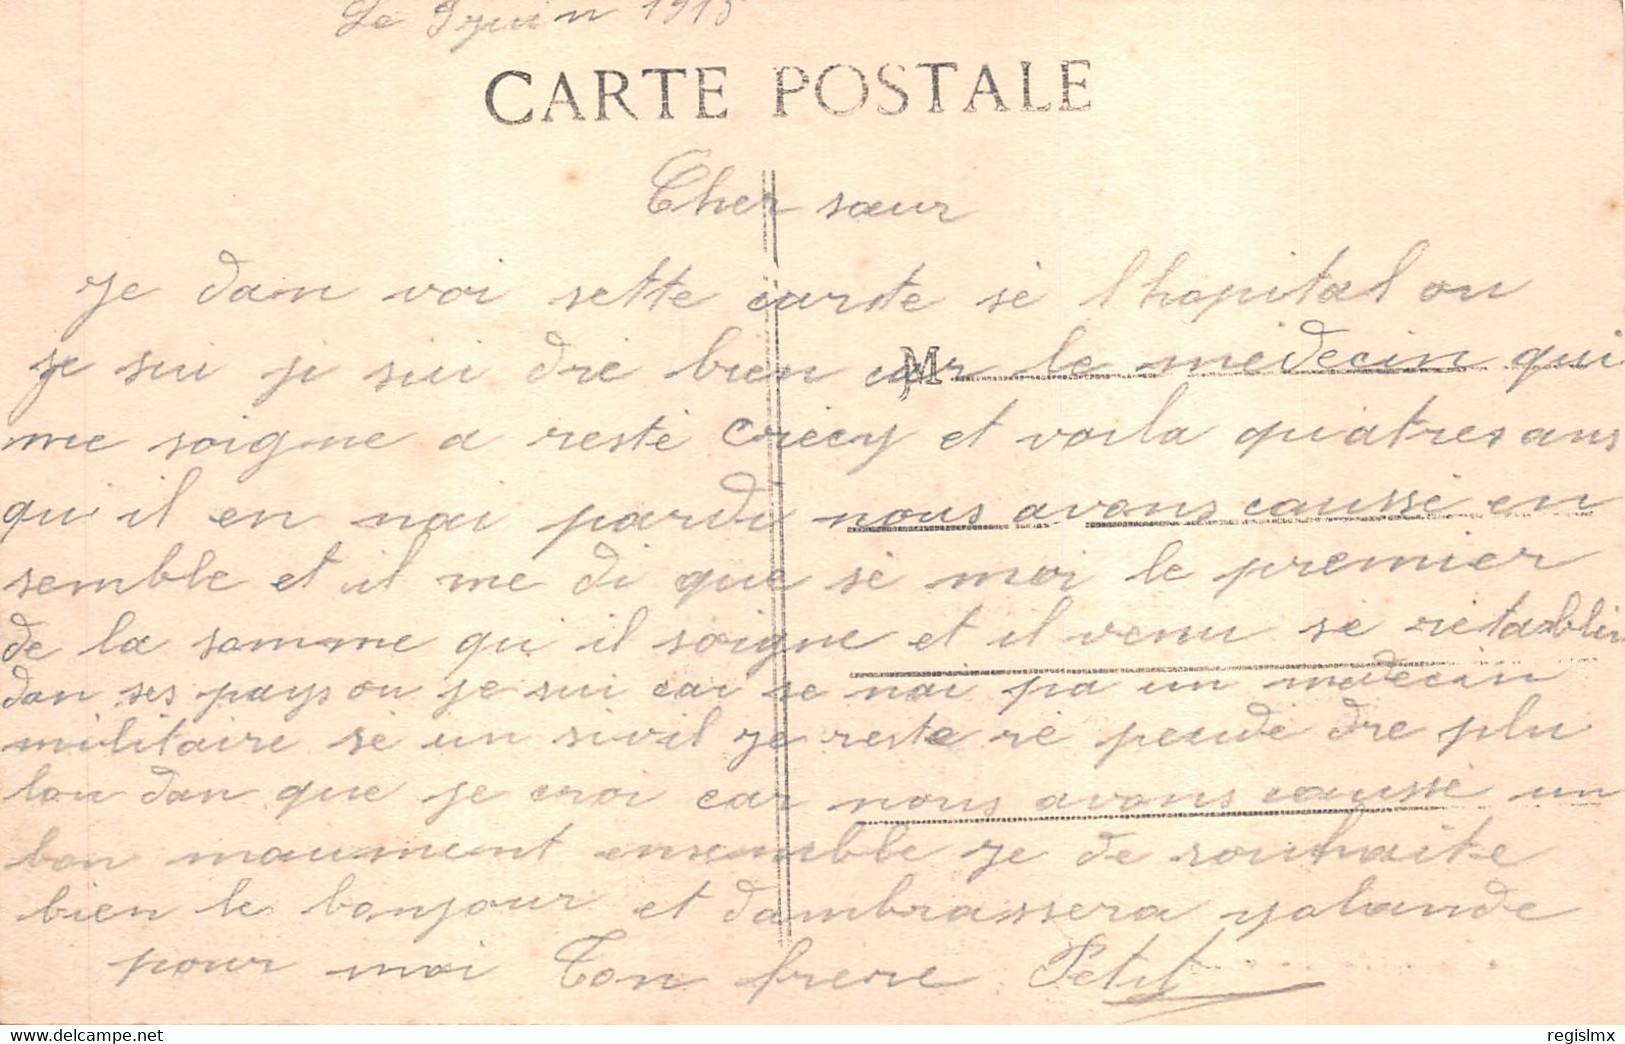 Le 9 juin 1915
CARTE POSTALE
Cher sœur
Je dan voi sette carste sè l'hopital ou
je sui je sui drè bien car le mèdecin qui
M
me soigne a restè Crècy et voila quiatres ans
qu'il en nai pardi nous avons caussè en
semble et il me di que sè moi le premier
de la somme qu'il soigne et il venu se rètablir
dan ses pays ou je sui car se nai pa un mèdecin
militaire sè un sivil je reste rè peudè dre plu
lon dan que je croi car nous avons caussè un
bon maument ensemble je de souhaite
bien le bonjour et dambrassera yolande
pour moi Ton frere Petit
regislmx